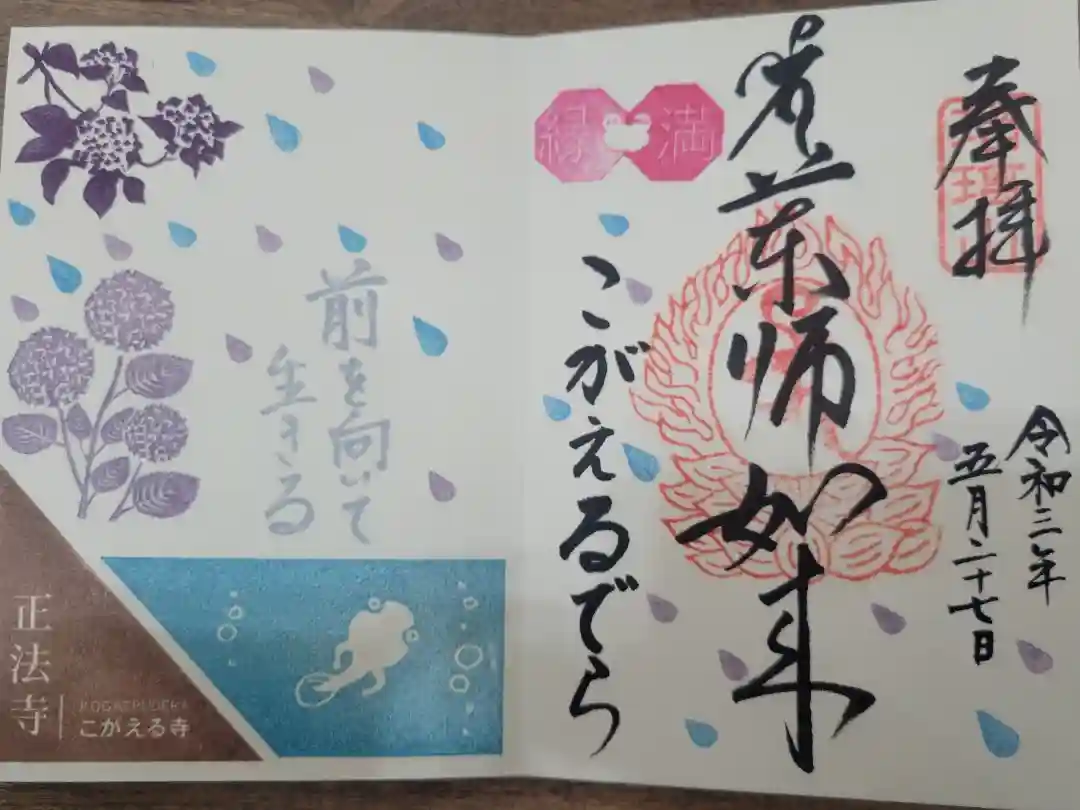 奉拝
令和三年
五月二十七日
薬師如来
縁 満
こがえるでら
前を向いて
生きる
正法寺
KOGAERUDERA
こがえる寺